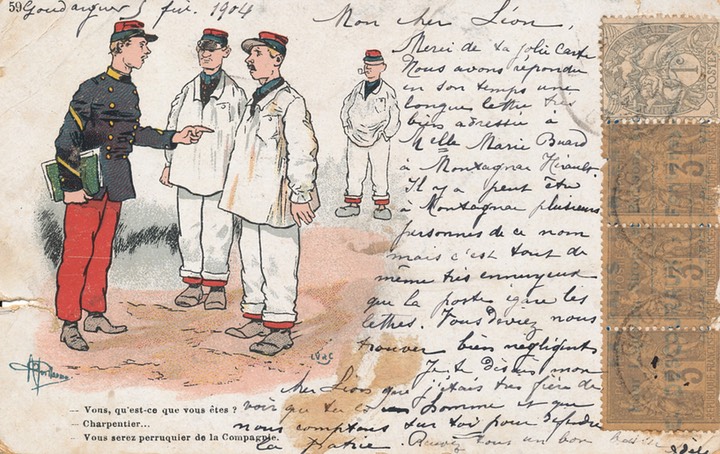 59
Goudargues 5 fév. 1904
Mon cher Léon,
Merci de ta jolie carte
Nous avons répondu
en son temps une
longue lettre très
bien adressée à
Melle Marie Buard
à Montagnac Hérault.
Il y a peut être
à Montagnac plusieurs
personnes de ce nom
mais c'est tout de
même très ennuyeux
que la poste égare les
lettres. Vous deviez nous
trouver bien négligents
Je te dirais mon
cher Léon que j'étais très fière de
voir que tu es un homme et que
nous comptons sur toi pour défendre
la patrie. Recevez tous un bon
— Vous, qu'est-ce que vous êtes ?
— Charpentier...
— Vous serez perruquier de la Compagnie.